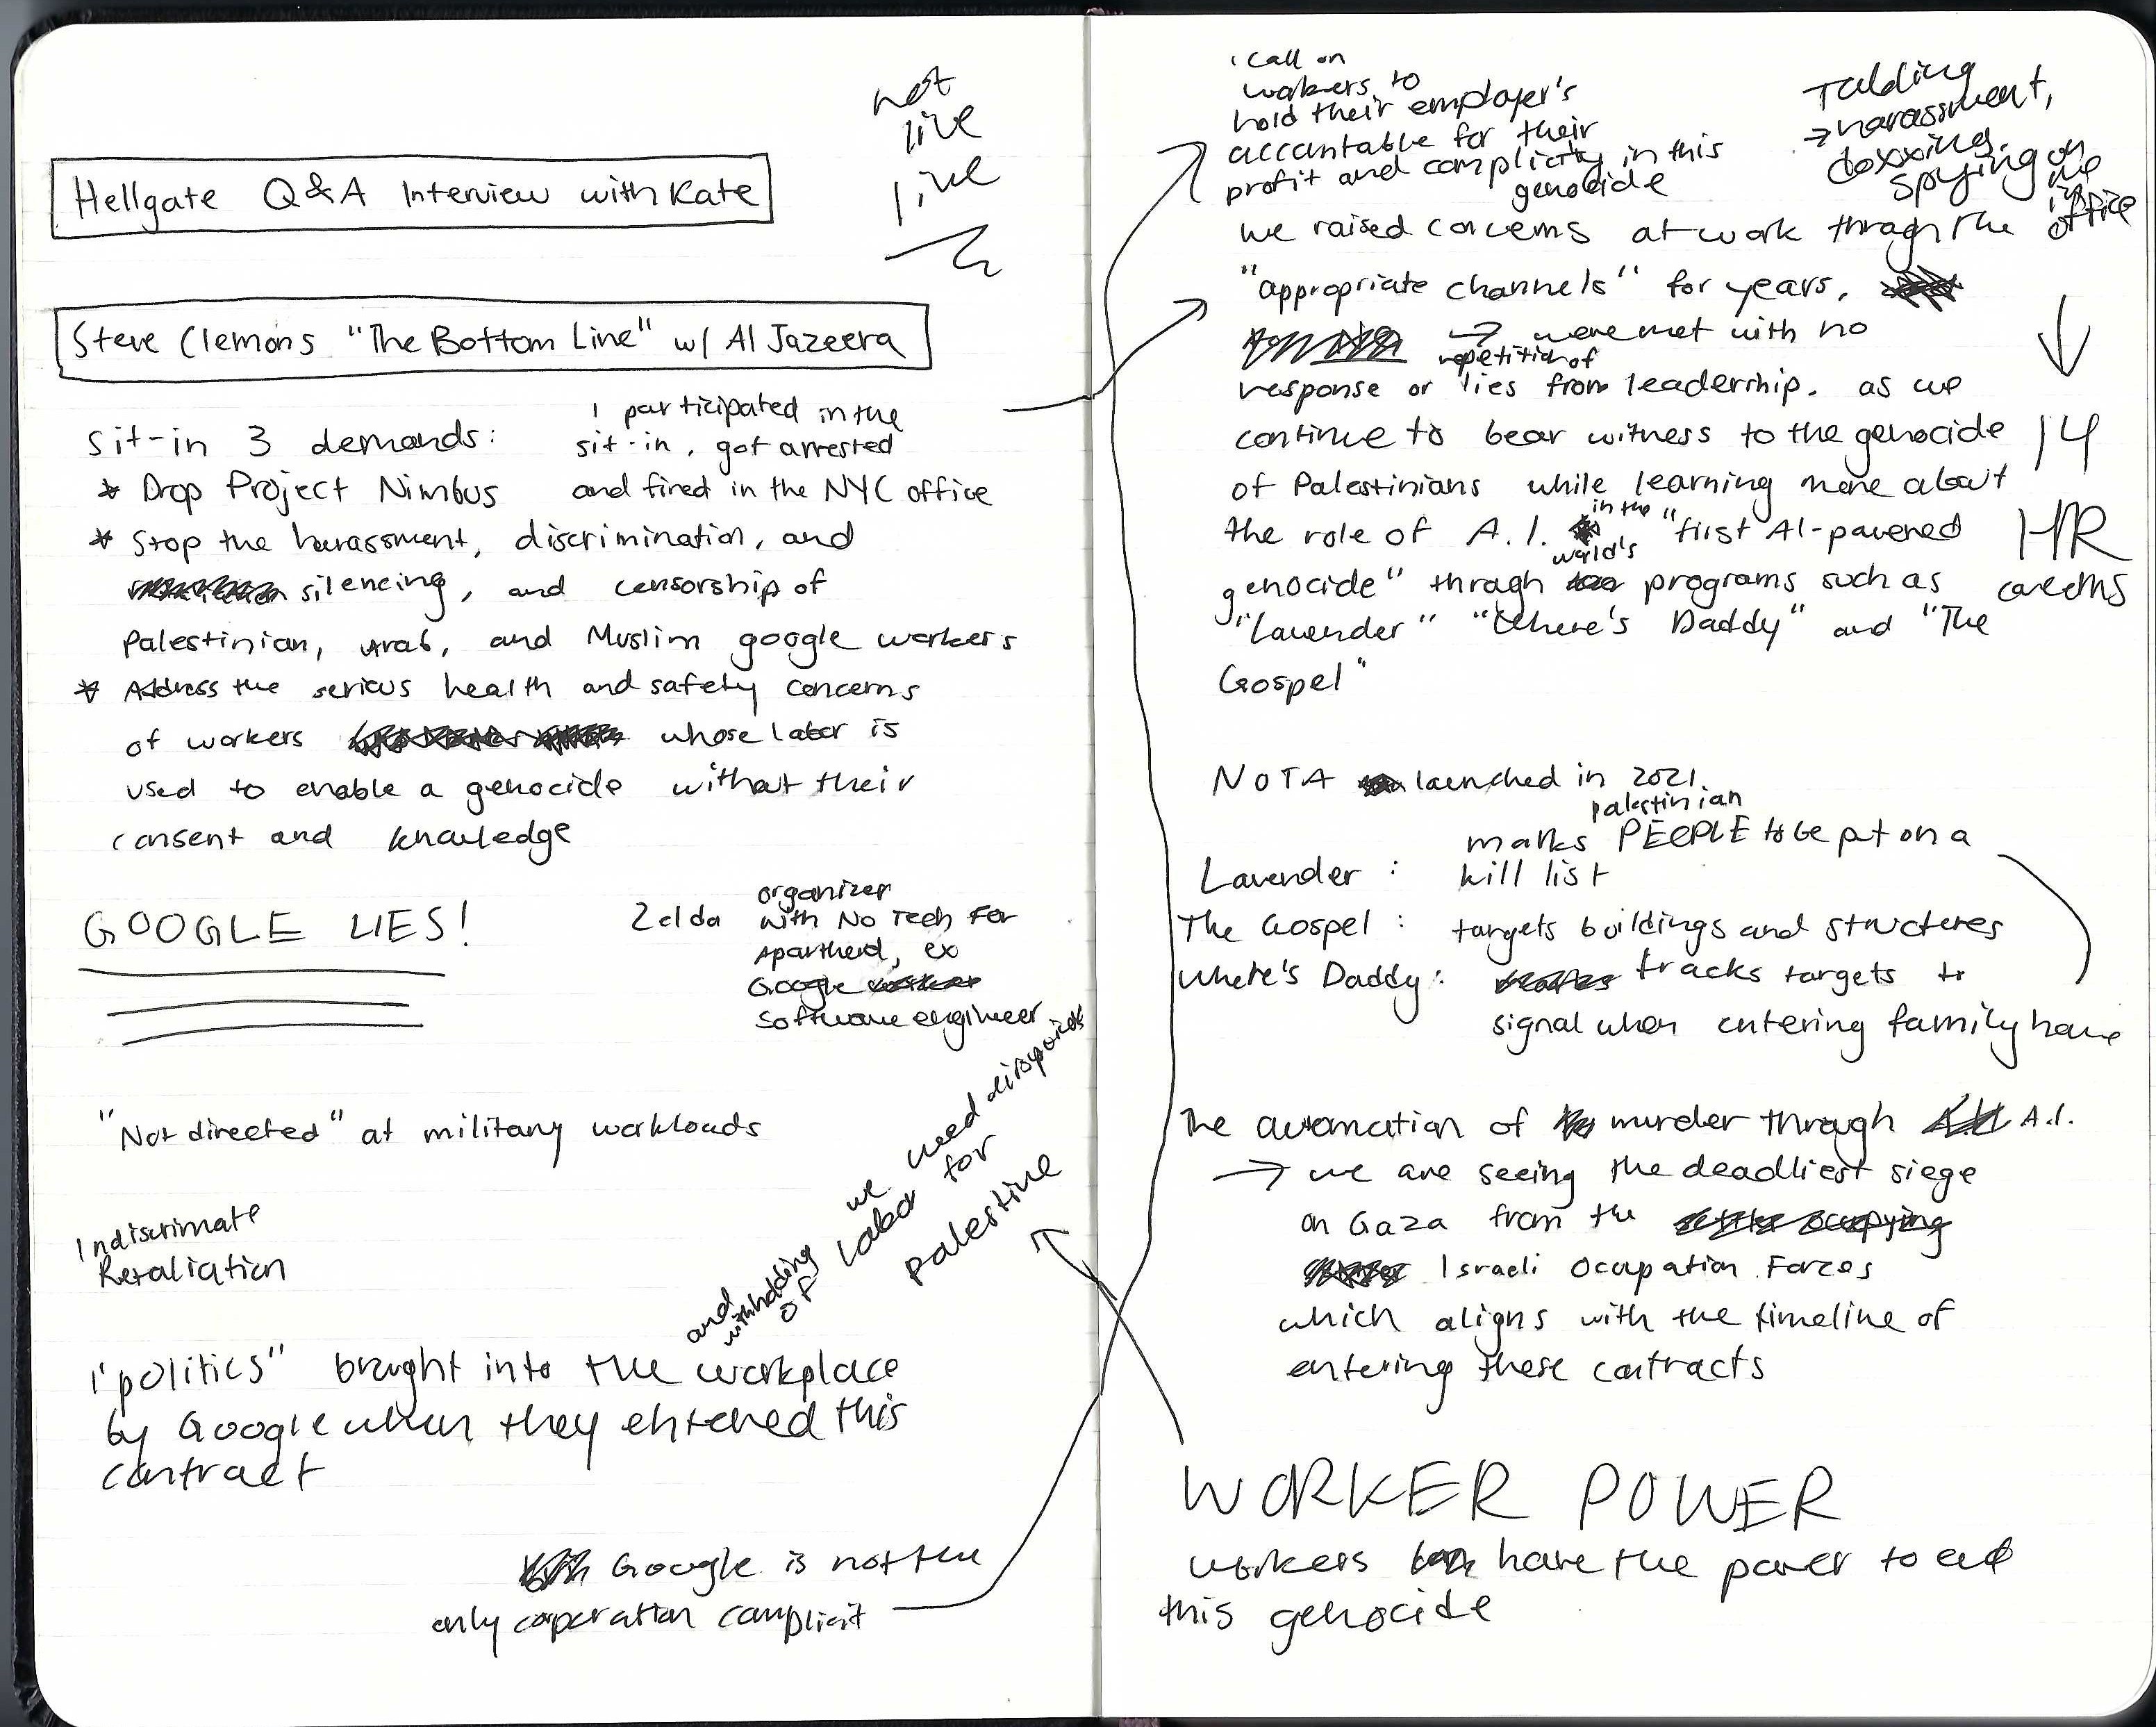 not
live
live
Hellgate Q&A Interview with Kate
Steve Clemons "The Bottom Line" w/ Al Jazeera
sit-in 3 demands:
* Drop Project Nimbus
* Stop the harassment, discrimination, and
silencing, and censorship of
Palestinian, Arab, and Muslim google workers
* Address the serious health and safety concerns
of workers whose labor is
used to enable a genocide without their
consent and knowledge
I participated in the
sit-in, got arrested
and fired in the NYC office
GOOGLE LIES!
Zelda
organizer
with No Tech For
Apartheid, ex
Google worker
software engineer
"Not directed" at military workloads
Indiscrimate
Retaliation
and
withholding
of
we need disrpoints
labor for
Palestine
"politics" brought into the workplace
by Google when they entered this
contract
Google is not the
only coporation complicit
I call on
workers to
hold their employer's
accountable for their
profit and complicity in this
genocide
Talding
→ harassment,
doxxing,
spying on
me
in
office
we raised concerns at work through the
"appropriate channels" for years.
→ were met with no
repetition of
response or lies from leadership. as we
continue to bear witness to the genocide
of Palestinians while learning more about
in the
the role of A.I. "first AI-powered
world's
genocide" through programs such as
"Lavender" "Where's Daddy" and "The
Gospel"
14
HR
concerns
NOTA launched in 2021.
palestinian
marks PEOPLE to be put on a
Lavender : kill list
The Gospel : targets buildings and structures
Where's Daddy: tracks targets to
signal when entering family home
The automation of murder through A.I.
→ we are seeing the deadliest siege
on Gaza from the occupying
Israeli Occupation Forces
which aligns with the timeline of
entering these contracts
WORKER POWER
workers have the power to end
this genocide